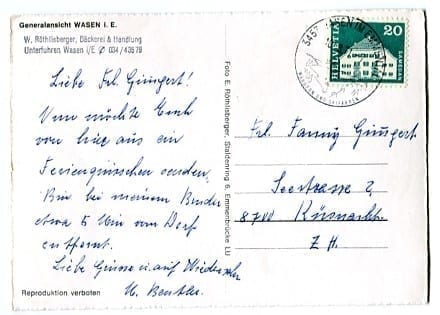 Generalansicht WASEN i. E.
W. Röthlisberger, Bäckerei & Handlung
Unterführen Wasen i/E Ø 034/43579
Liebe Frl. Gimgert!
Nun möchte Euch
von hier aus ein
Feriengrüsschen senden.
Bin bei meinem Bruder
etwa 5 Min vom Dorf
entfernt.
Liebe Grüsse u. auf Wiedersehn
Reproduktion verboten
Foto E. Röthlisberger, Staldenring 6, Emmenbrücke LU
3457 WASEN IM EMMENTAL
HELVETIA
20
SAMEDAN
Frl. Fanny Gimgert
Seestrasse 2
8700 Küsnacht
Z H.